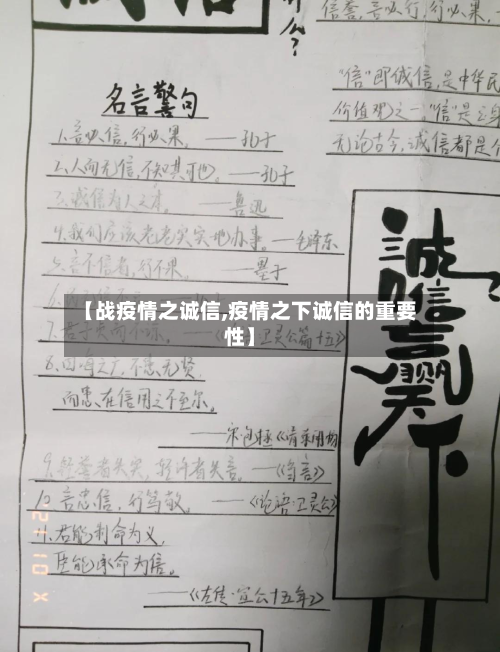 诚信
什么？
信誉，言必行，行必果，
"信"即诚信，是中华民
价值观之一，"信"是立身
无论古今，诚信都是个
名言警句
1、言必信，行必果。——孔子
2、人而无信，不知其可也。——孔子
3、诚信为人之本。——鲁迅
4、我们应该老老实实地办事。——毛泽东
5、言不信者，行不果。——墨子
【战疫情之诚信,疫情之下诚信的重要性】
7、君子贞而不谅。——卫灵公篇十五》
8、四海之广，不患无贤，
而患在信用之不至尔。
——宋·包拯《请录用
9、轻诺者失实，
——《
10、言忠信，行笃敬。——《论语·卫灵公》
11、君能制命为义，
臣能承命为信。
——《左传·宣公十五年》
诚信赢天下